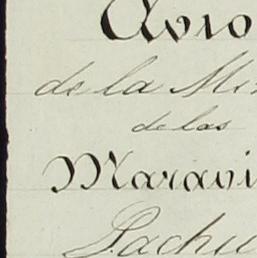 Avio
de la Mi
de las
Maravi
Pachu